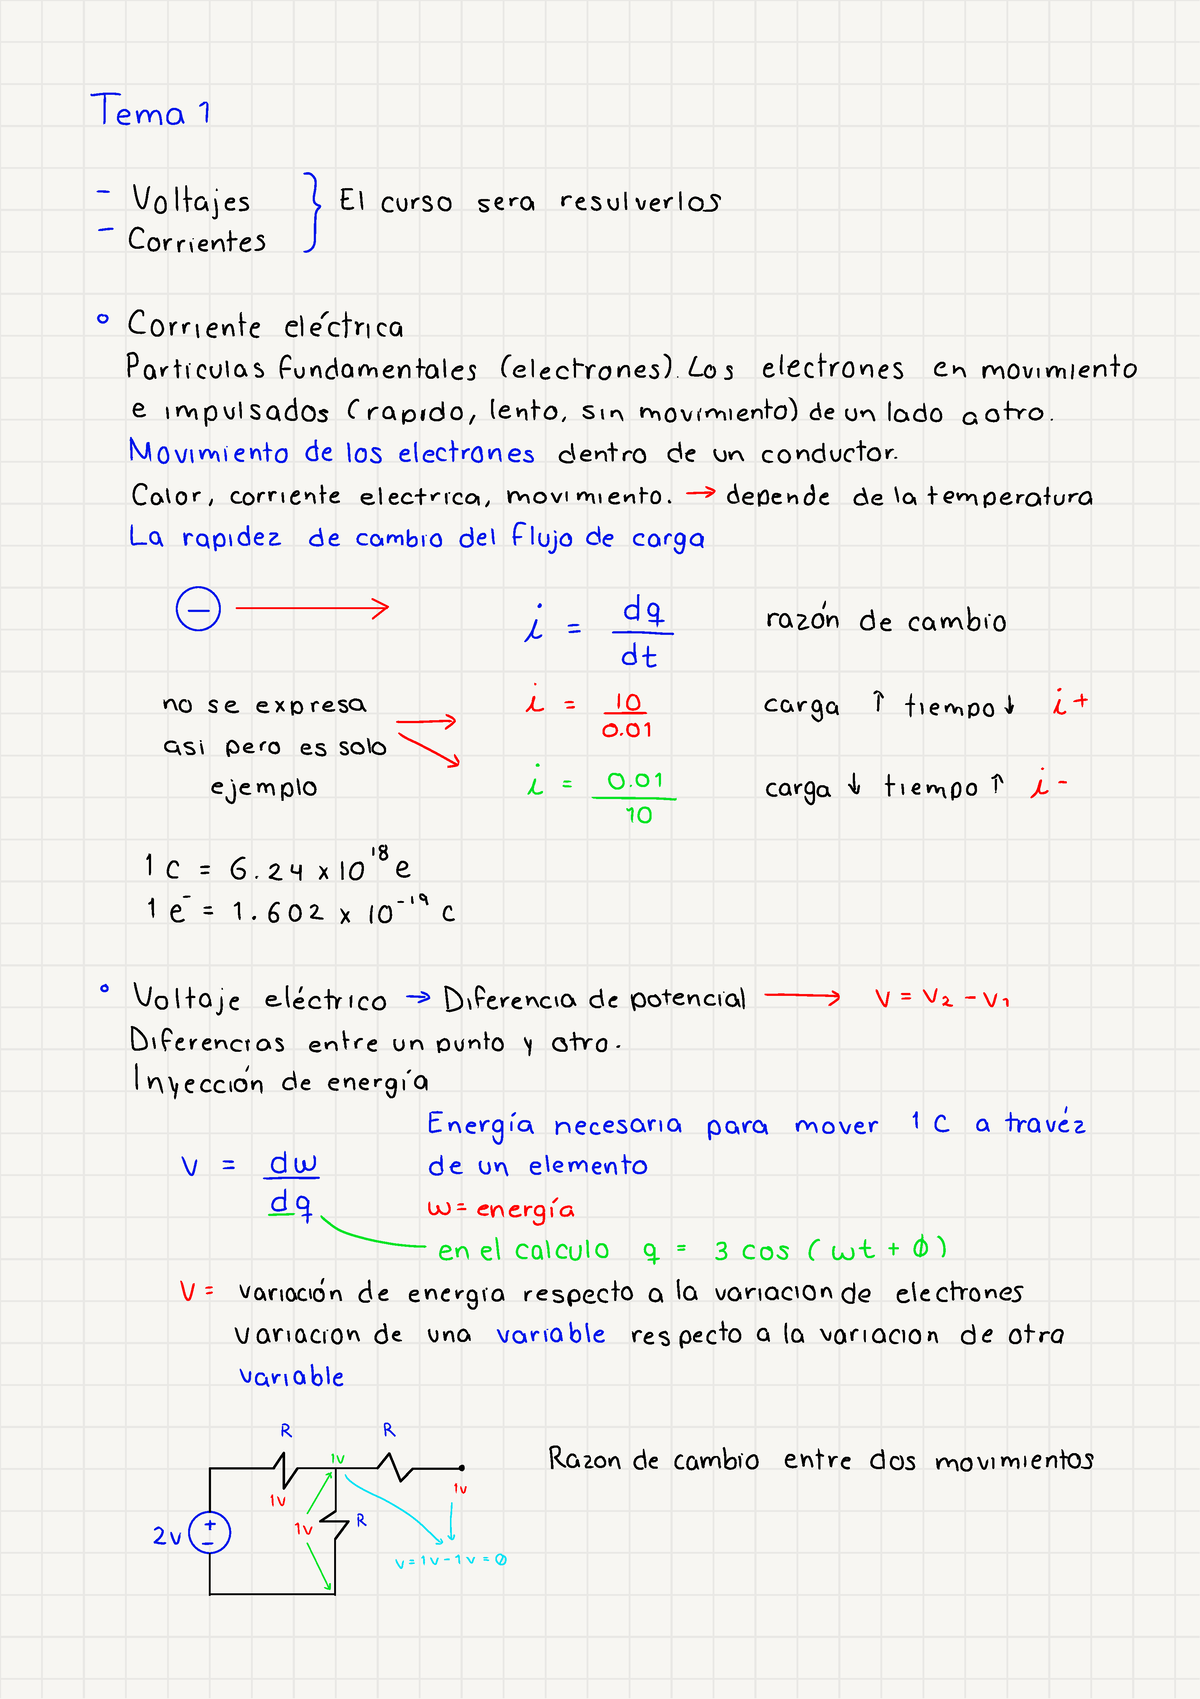 Tema 1
- Voltajes
- Corrientes
} El curso sera resulverlos
° Corriente eléctrica
Particulas fundamentales (electrones). Los electrones en movimiento
e impulsados (rapido, lento, sin movimiento) de un lado a otro.
Movimiento de los electrones dentro de un conductor.
Calor, corriente electrica, movimiento. → depende de la temperatura
La rapidez de cambio del flujo de carga
− → i = dq/dt razón de cambio
no se expresa
asi pero es solo
ejemplo
i = 10/0.01 carga ↑ tiempo ↓ i+
i = 0.01/10 carga ↓ tiempo ↑ i-
1 C = 6.24 x 10¹⁸ e
1 e⁻ = 1.602 x 10⁻¹⁹ C
° Voltaje eléctrico → Diferencia de potencial → V = V₂ - V₁
Diferencias entre un punto y otro.
Inyección de energía
Energía necesaria para mover 1 C a travéz
de un elemento
V = dw/dq
w = energía
en el calculo q = 3 cos (wt + ϕ)
V = variación de energia respecto a la variacion de electrones
variacion de una variable respecto a la variacion de otra
variable
R R
1v
Razon de cambio entre dos movimientos
1v 1v
2v + − 1v R
v = 1v - 1v = 0